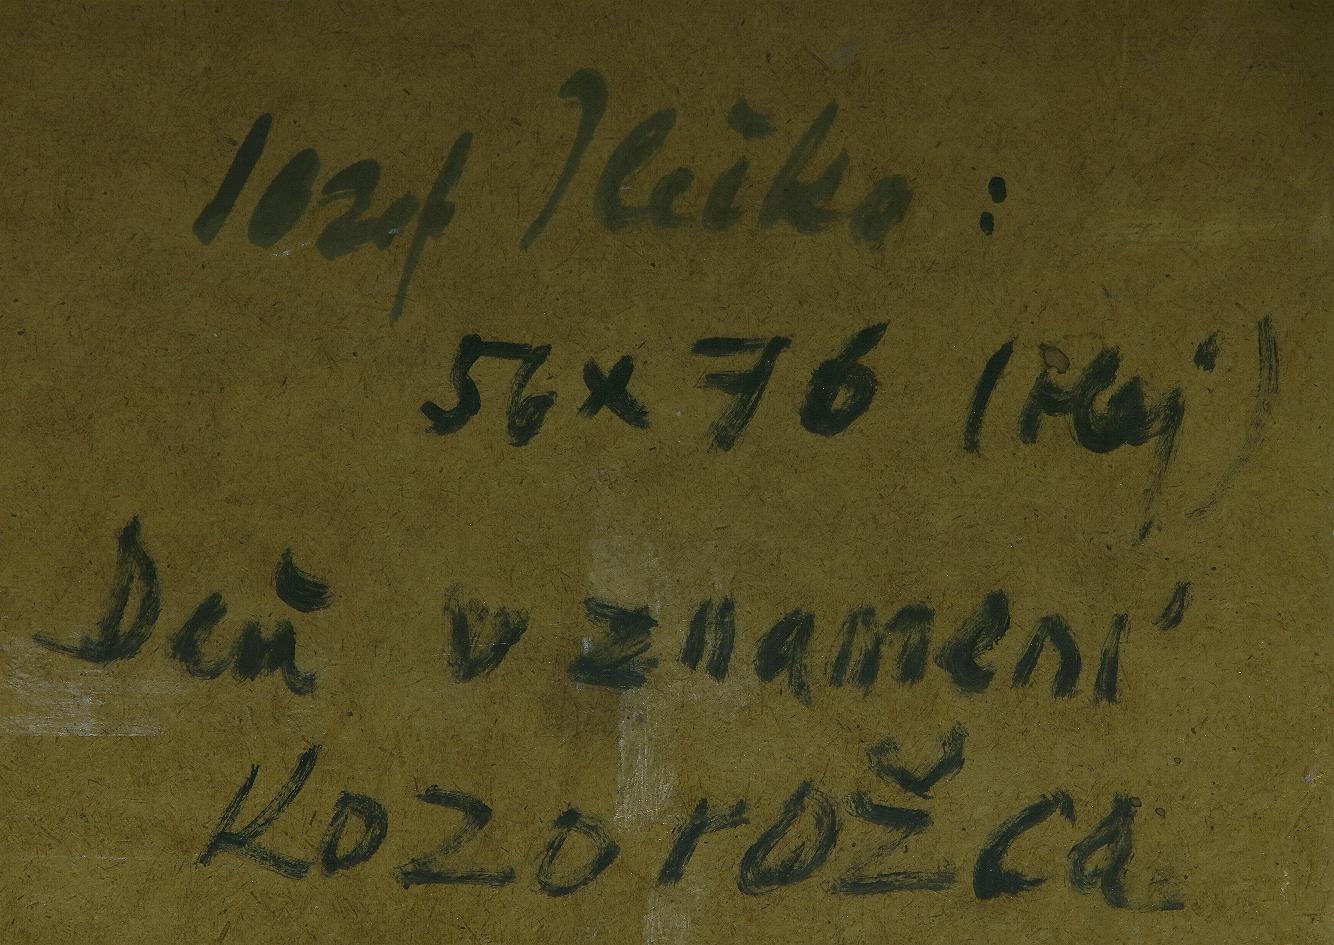 Jozef Ilečko :
56x76 (olej)
Deň v znamení
Kozorožca